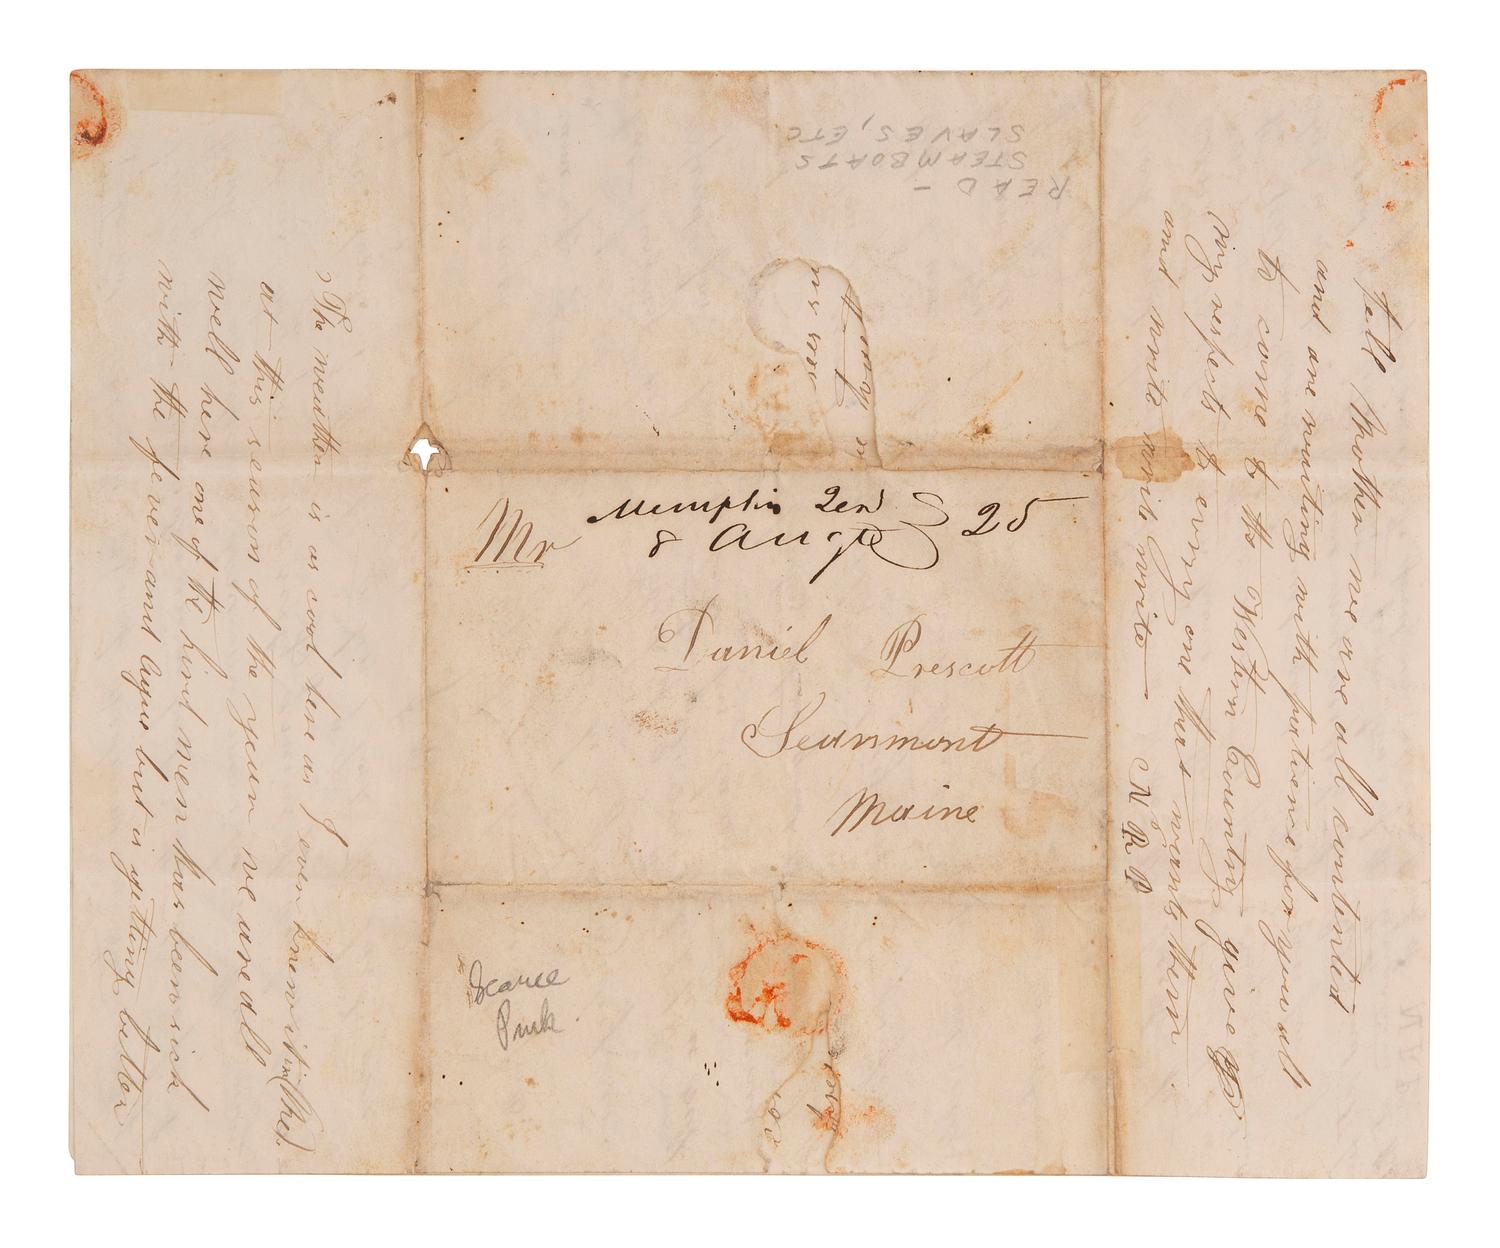 READ –
STEAMBOATS
SLAVES, ETC
Memphis Ten
8 Augt
25
Mr
Daniel Prescott
Searsmont
Maine
Scarce
Pmk.
Tell Mother we are all contented
and are waiting with patience for you all
to come to the Western Country give
my respects to every one thars wants them
and write write write write — N R P
The weather is as cool here as I ever knew it in
at this season of the year we are all
well here one of the hird men has been sick
with the fever and Ague but is getting better